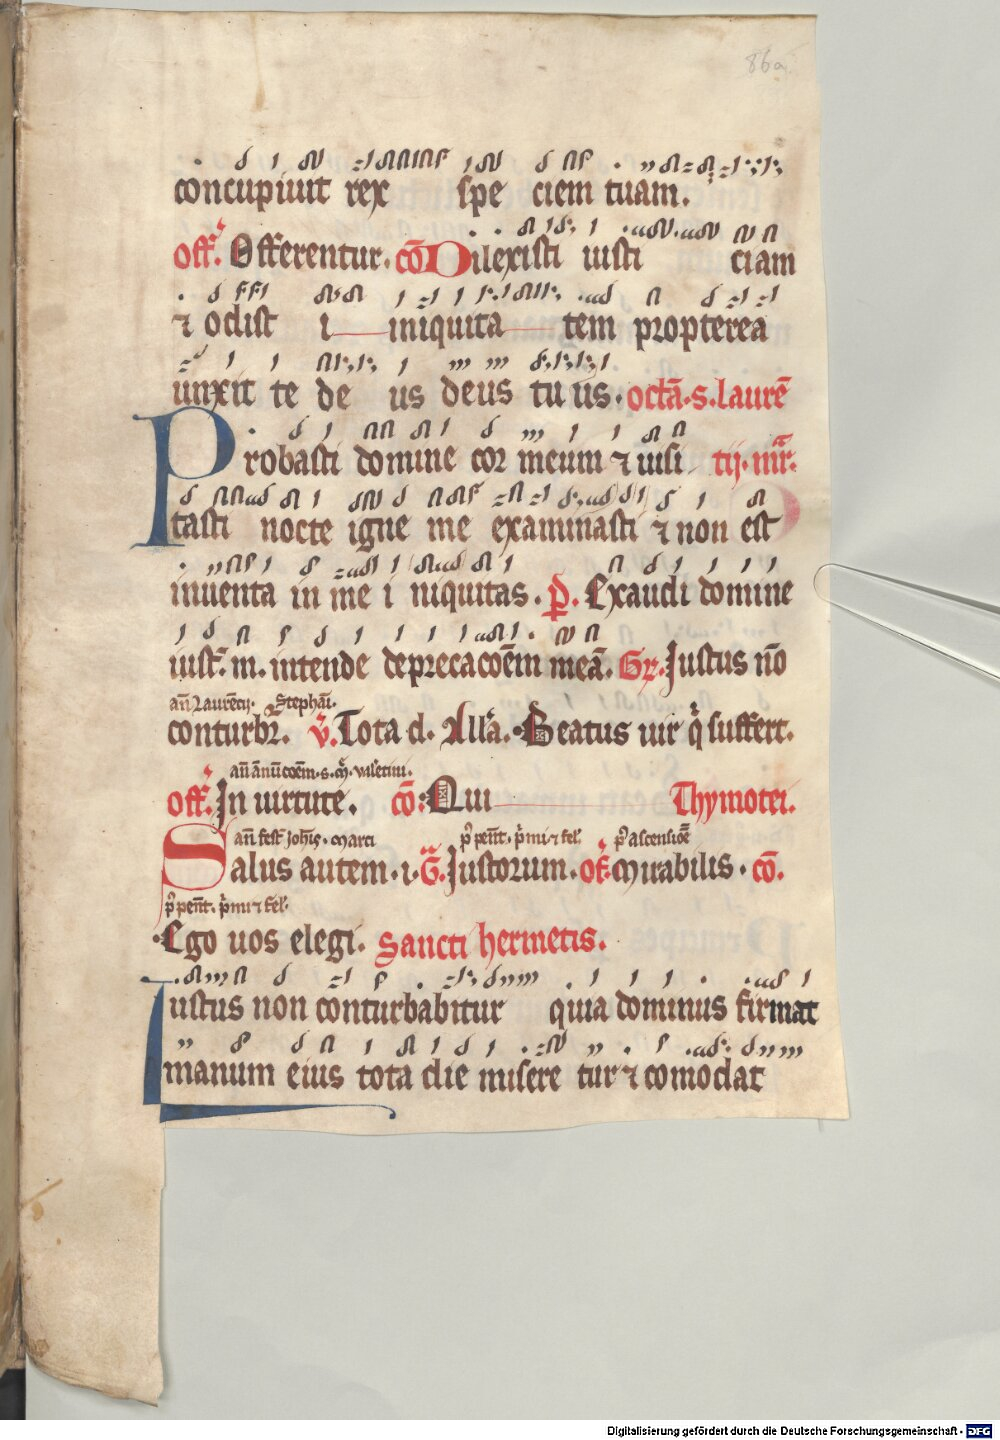 86a
concupiuit rex spe ciem tuam.
off. Offerentur. cō Dilexisti iusti ciam
⁊ odist i iniquita tem propterea
unxit te de us deus tu us. octā. s. laurē
Probasti domine cor meum ⁊ uisi tij. mr̄.
tasti nocte igne me examinasti ⁊ non est
inuenta in me i niquitas. P̄. Exaudi domine
iust. m. intende deprecacoēm meā. Gr. Iustus nō
an̄ Laurētij. Stephāi.
conturb. v. Tota d. Allā. Beatus uir q̄ suffert.
off. In uirtute. cō: Qui Thymotei.
an̄ fest Johīs. marci
Salus autem. i. G. Iustorum. of. mirabilis. cō.
Ego uos elegi. Sancti hermetis.
Iustus non conturbabitur quia dominus firmat
manum eius tota die misere tur ⁊ comodat
Digitalisierung gefördert durch die Deutsche Forschungsgemeinschaft - DFG